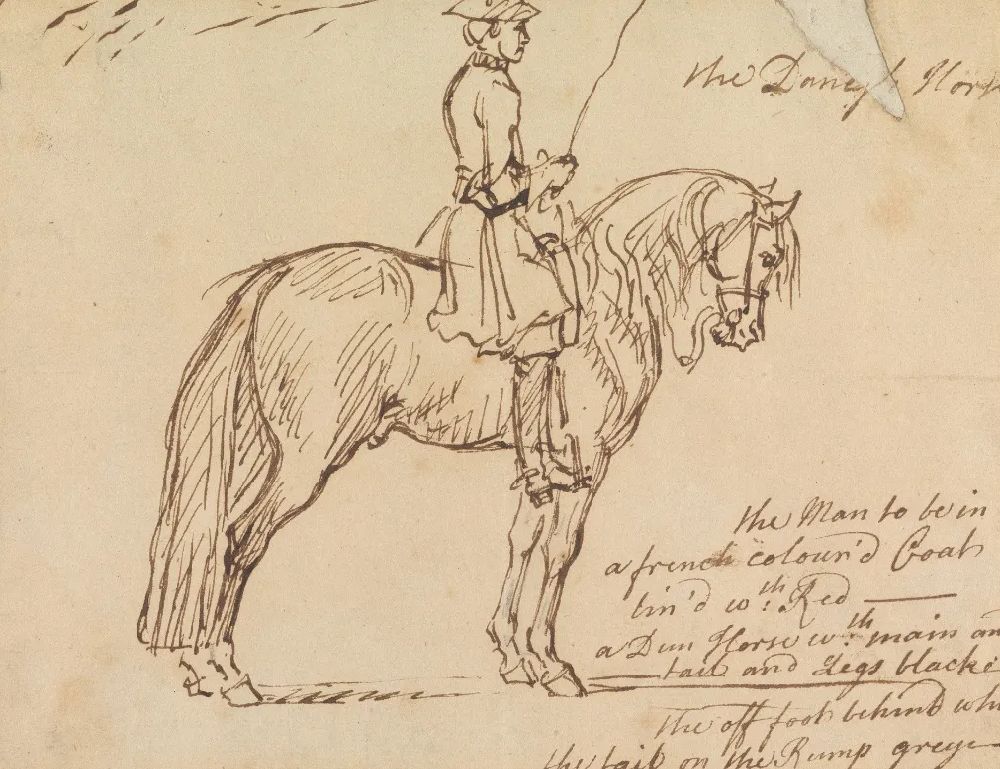 the Danesh Hors
the Man to be in
a french colour'd Coat
lin'd wth: Red —
a Dun Horse wth: main an
tail and Legs blacki
the off foot behind whi
the tail on the Rump greye